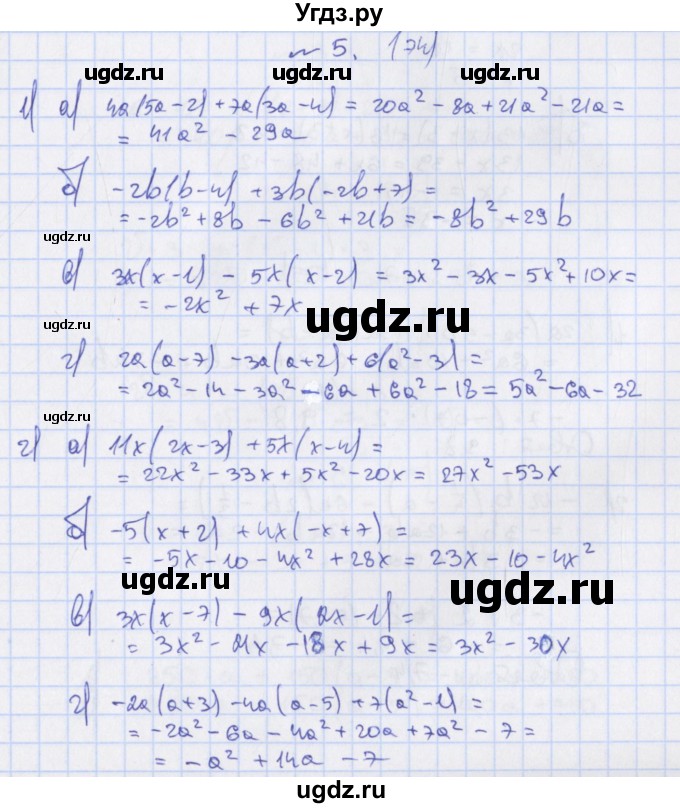 Угдз.ру
№ 5. (74)
ugdz.ru ugdz.ru ugdz.ru
1) а) 4a(5a-2)+7a(3a-4) = 20a² - 8a + 21a² - 21a =
= 41a² - 29a
б) -2b(b-4) + 3b(-2b+7) =
= -2b² + 8b - 6b² + 21b = -8b² + 29b
ugdz.ru
в) 3x(x-1) - 5x(x-2) = 3x² - 3x - 5x² + 10x =
= -2x² + 7x
ugdz.ru
ugdz.ru
г) 2a(a-7) - 3a(a+2) + 6(a²-3) =
= 2a² - 14 - 3a² - 6a + 6a² - 18 = 5a² - 6a - 32
ugdz.ru
2) а) 11x(2x-3) + 5x(x-4) =
= 22x² - 33x + 5x² - 20x = 27x² - 53x
б) -5(x+2) + 4x(-x+7) =
= -5x - 10 - 4x² + 28x = 23x - 10 - 4x²
ugdz.ru
ugdz.ru
в) 3x(x-7) - 9x(2x-1) =
= 3x² - 21x - 18x + 9x = 3x² - 30x
г) -2a(a+3) - 4a(a-5) + 7(a²-1) =
= -2a² - 6a - 4a² + 20a + 7a² - 7 =
= -a² + 14a - 7
ugdz.ru ugdz.ru ugdz.ru